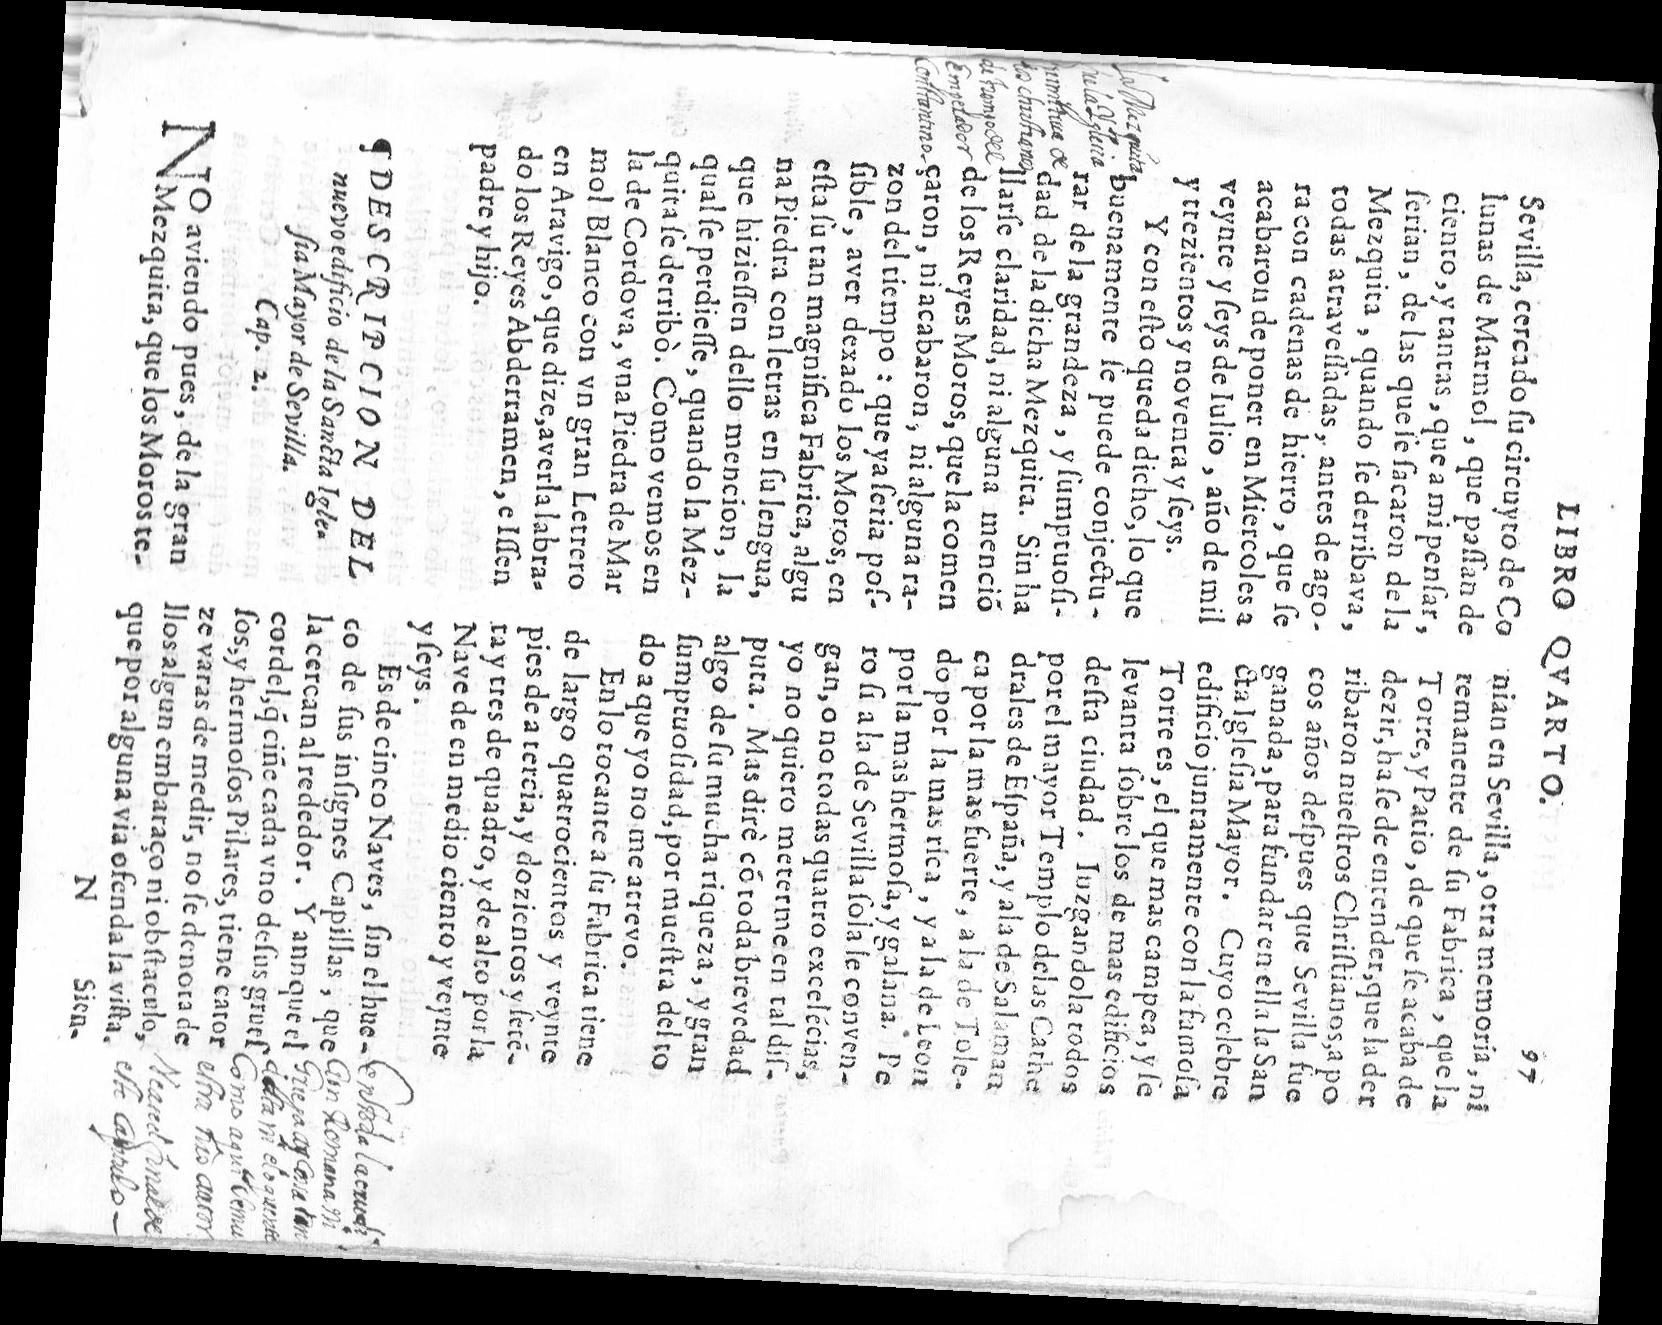 LIBRO QVARTO.
97
Sevilla, cercado ſu circuyto de Co
lunas de Marmol, que paſſan de
ciento, y tantas, que a mi penſar,
ſerian, de las que ſe ſacaron de la
Mezquita, quando ſe derribava,
todas atraveſſadas, antes de ago-
ra con cadenas de hierro, que ſe
acabaron de poner en Miercoles a
veynte y ſeys de Iulio, año de mil
y trezientos y noventa y ſeys.
Y con eſto queda dicho, lo que
buenamente ſe puede conjectu-
rar de la grandeza, y ſumptuoſi-
dad de la dicha Mezquita. Sin ha
llarſe claridad, ni alguna menció
de los Reyes Moros, que la comen
çaron, ni acabaron, ni alguna ra-
zon del tiempo: que ya ſeria poſ-
ſible, aver dexado los Moros, en
eſta ſu tan magnifica Fabrica, algu
na Piedra con letras en ſu lengua,
que hizieſſen dello mencion, la
qual ſe perdieſſe, quando la Mez-
quita ſe derribò. Como vemos en
la de Cordova, vna Piedra de Mar
mol Blanco con vn gran Letrero
en Aravigo, que dize, averla labra-
do los Reyes Abderramen, e Iſſen
padre y hijo.
¶ DESCRIPCION DEL
nuevo edificio de la Sancta Igle-
ſia Mayor de Sevilla.
Cap. 2.
NO aviendo pues, de la gran
Mezquita, que los Moros te-
nian en Sevilla, otra memoria, ni
remanente de ſu Fabrica, que la
Torre, y Patio, de que ſe acaba de
dezir, haſe de entender, que la der
ribaron nueſtros Chriſtianos, a po
cos años deſpues que Sevilla fue
ganada, para fundar en ella la San
cta Igleſia Mayor. Cuyo celebre
edificio juntamente con la famoſa
Torre es, el que mas campea, y ſe
levanta ſobre los de mas edificios
deſta ciudad. Iuzgandola todos
por el mayor Templo de las Cathe
drales de Eſpaña, y a la de Salaman
ca por la mas fuerte, a la de Tole-
do por la mas rica, y a la de Leon
por la mas hermoſa, y galana. Pe
ro ſi a la de Sevilla ſola le conven-
gan, o no todas quatro excelécias,
yo no quiero meterme en tal diſ-
puta. Mas dirè có toda brevedad
algo de ſu mucha riqueza, y gran
ſumptuoſidad, por mueſtra del to
do a que yo no me atrevo.
En lo tocante a ſu Fabrica tiene
de largo quatrocientos y veynte
pies de a tercia, y dozientos y ſeté-
ta y tres de quadro, y de alto por la
Nave de en medio ciento y veynte
y ſeys.
Es de cinco Naves, ſin el hue-
co de ſus inſignes Capillas, que
la cercan al rededor. Y annque el
cordel, q̃ ciñe cada vno de ſus grueſ
ſos, y hermoſos Pilares, tiene cator
ze varas de medir, no ſe denota de
llos algun embaraço ni obſtaculo,
que por alguna via ofenda la viſta.
N
Sien-
La Mezquita
de los chriſtianos
Emperador
Conſtantino.
eſte capitulo